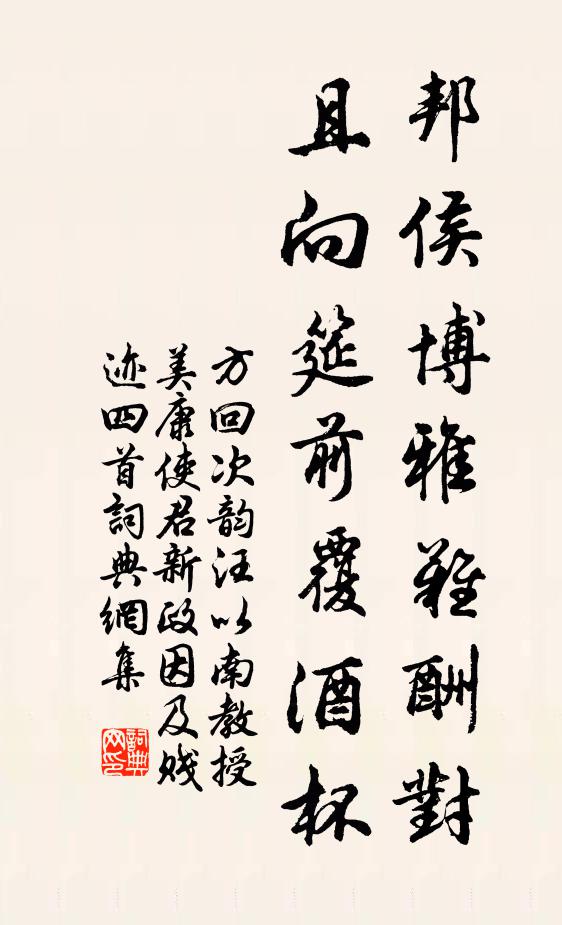 邦侯博雅難酬對
且向筵前覆酒杯
方回次韵汪以南教授
美康使君新政因及賤
迹四首詞典網集
詞典网印